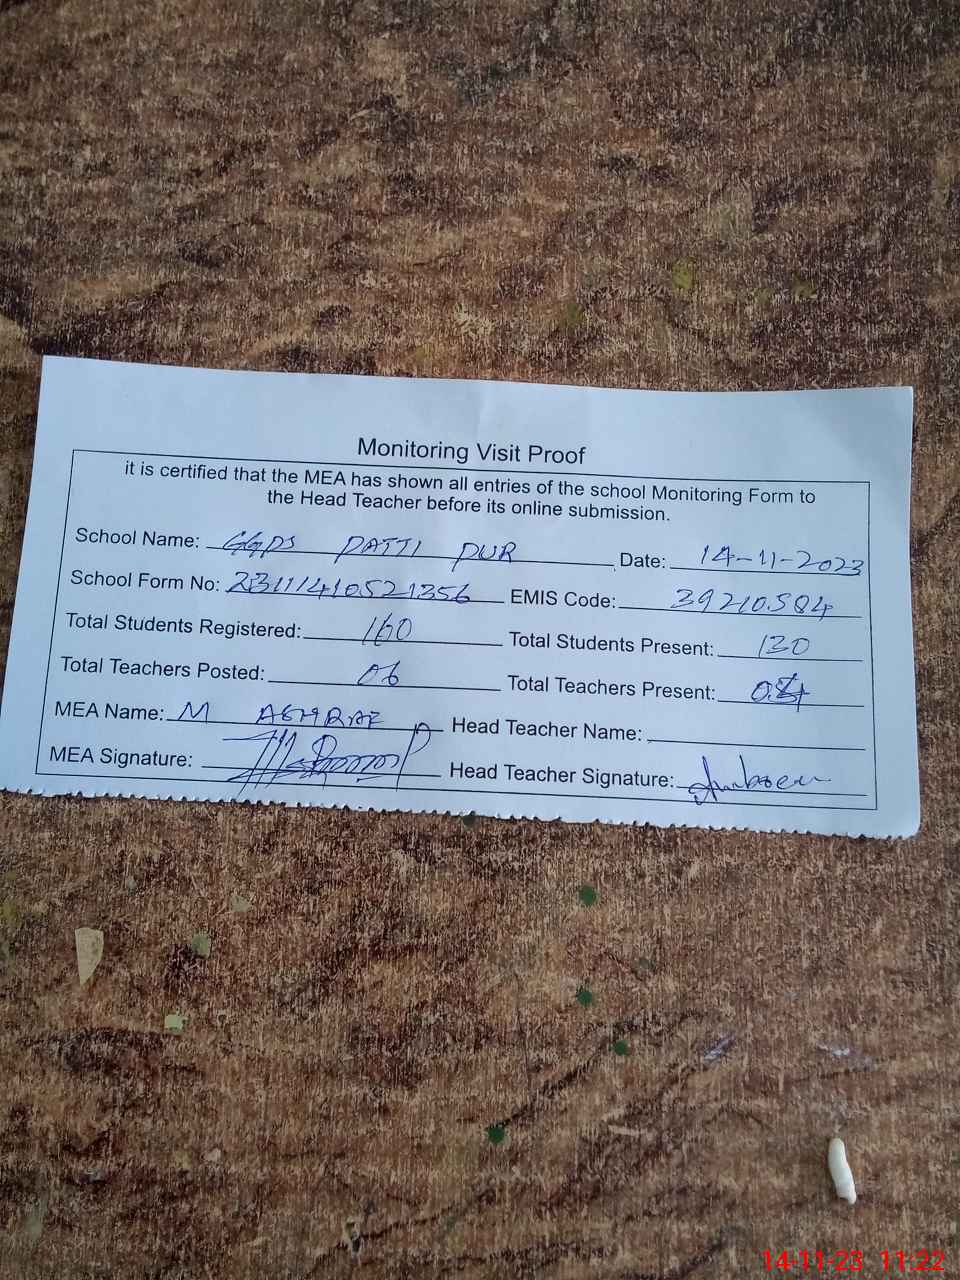 Monitoring Visit Proof
it is certified that the MEA has shown all entries of the school Monitoring Form to
the Head Teacher before its online submission.
School Name: GGPS PATTI PUR Date: 14-11-2023
School Form No: 23111410521356 EMIS Code: 39210504
Total Students Registered: 160 Total Students Present: 130
Total Teachers Posted: 06 Total Teachers Present:
MEA Name: M ASHRAF Head Teacher Name:
MEA Signature: Head Teacher Signature:
14-11-23 11:22